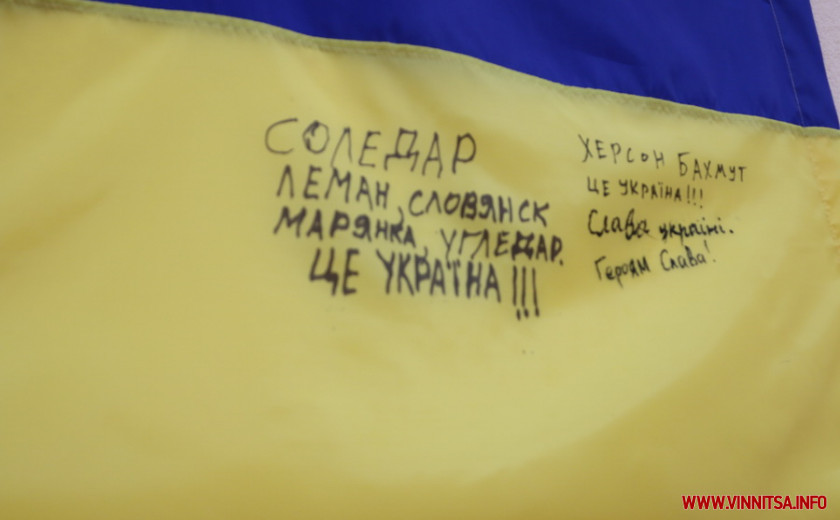 СОЛЕДАР
ЛЕМАН, СЛОВЯНСК
МАРЯНКА, УГЛЕДАР.
ЦЕ УКРАЇНА!!!
ХЕРСОН БАХМУТ
ЦЕ УКРАЇНА!!!
Слава україні.
Героям Слава!
WWW.VINNITSA.INFO